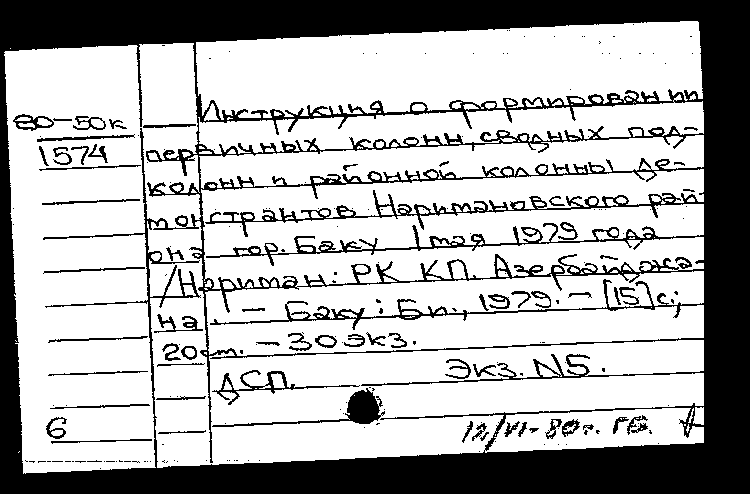 80-50к
1574
Инструкция о формировании
первичных колонн, сводных под-
колонн и районной колонны де-
монстрантов Наримановского рай-
она гор. Баку 1 мая 1979 года
/Нариман. РК КП. Азербайджа-
на. - Баку: Би., 1979. - [15] с.;
20 см. - 30 экз.
ДСП. Экз. N5.
6
12/VI-80г.